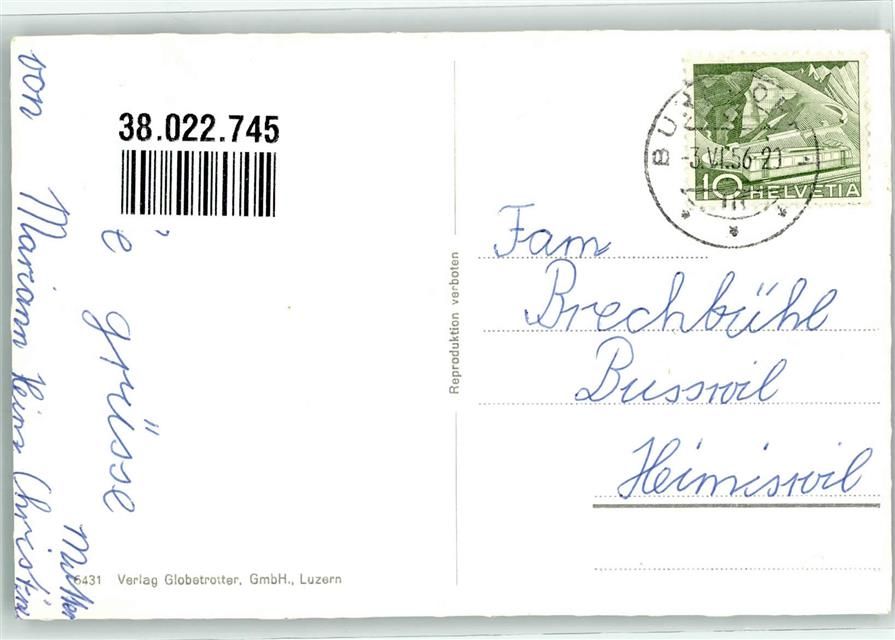 38.022.745
e grüsse
von Mariann Heinz Christine
Mutter
6431 Verlag Globetrotter, GmbH., Luzern
Reproduktion verboten
-3.VI.56-20
10 HELVETIA
Fam
Brechbühl
Busswil
Heimiswil